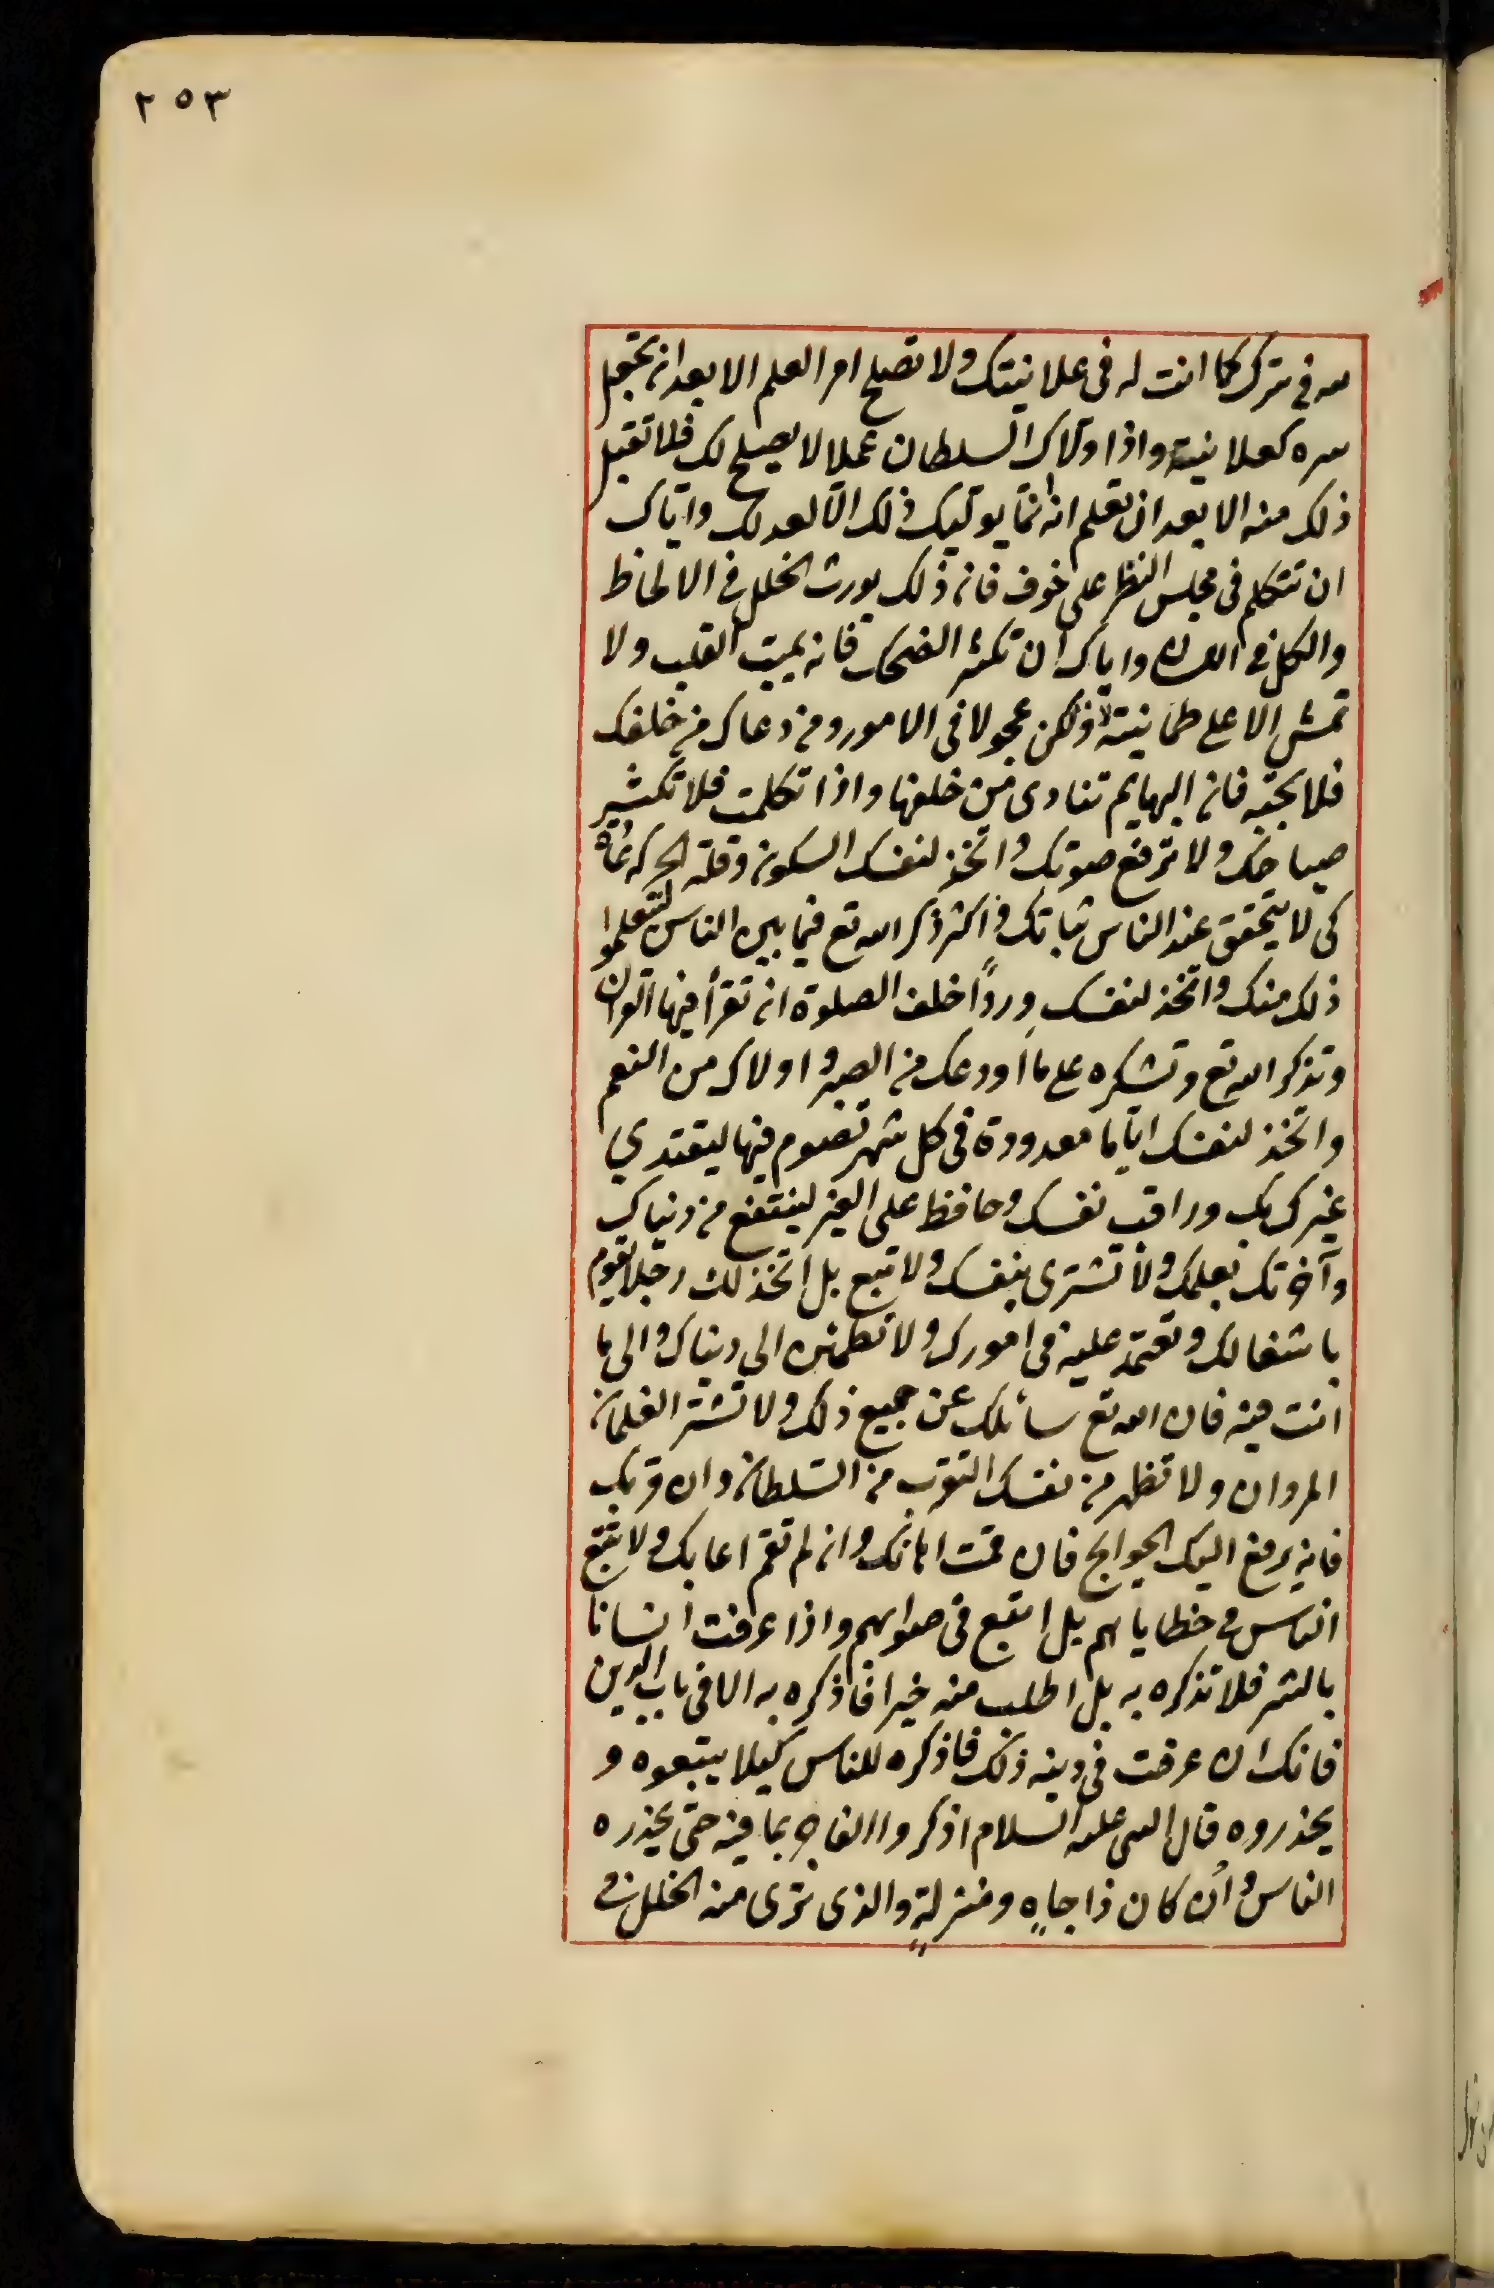 ٢٥٣
لله في سرك كما انت له في علانيتك ولا تصلح امر العلم الا بعد ان تجعل
سره كعلانيته واذا ولاك السلطان عملا لا يصلح لك فلا تقبل
ذلك منه الا بعد ان تعلم انه انما يوليك ذلك الا لعدلك واياك
ان تتكلم في مجلس النظر على خوف فان ذلك يورث الخلل في الالحاظ
والكل في اللسان واياك ان تكثر الضحك فانه يميت القلب ولا
تمش الا على طمانينة ولا تكن عجولا في الامور ومن دعاك من خلفك
فلا تجبه فان البهايم تنادى من خلفها واذا تكلمت فلا تكثر
صياحك ولا ترفع صوتك واتخذ لنفسك السكون وقلة الحركة عادة
كى لا يتحقق عند الناس ثباتك واكثر ذكر الله تع فيما بين الناس ليتعلموا
ذلك منك واتخذ لنفسك وردًا خلف الصلوة ان تقرأ فيها القران
وتذكر الله تع وتشكره على ما أودعك من الصبر واولاك من النعم
واتخذ لنفسك اياما معدودة في كل شهر تصوم فيها ليقتدي
غيرك بك وراقب نفسك وحافظ على الغير لينتفع من دنياك
وآخرتك بعلمك ولا تشترى بنفسك ولا تبع بل اتخذ لك رجلا يقوم
باشغالك وتعتمد عليه في امورك ولا تطمئن الى دنياك والى ما
انت فيه فان الله تع سائلك عن جميع ذلك ولا تشتر الغلمان
المردان ولا تظهر من نفسك التقرب من السلطان وان قربك
فانه يرفع اليك الحوايج فان قمت اهانك وان لم تقم اعابك ولا تتبع
الناس في خطاياهم بل اتبع في صوابهم واذا عرفت انسانا
بالشر فلا تذكره به بل اطلب منه خيرا فاذكره به الا في باب الدين
فانك ان عرفت في دينه ذلك فاذكره للناس كيلا يتبعوه و
يحذروه قال النبى عليه السلام اذكروا الفاجر بما فيه حتى يحذره
الناس وان كان ذا جاهٍ ومنزلةٍ والذى ترى منه الخلل في